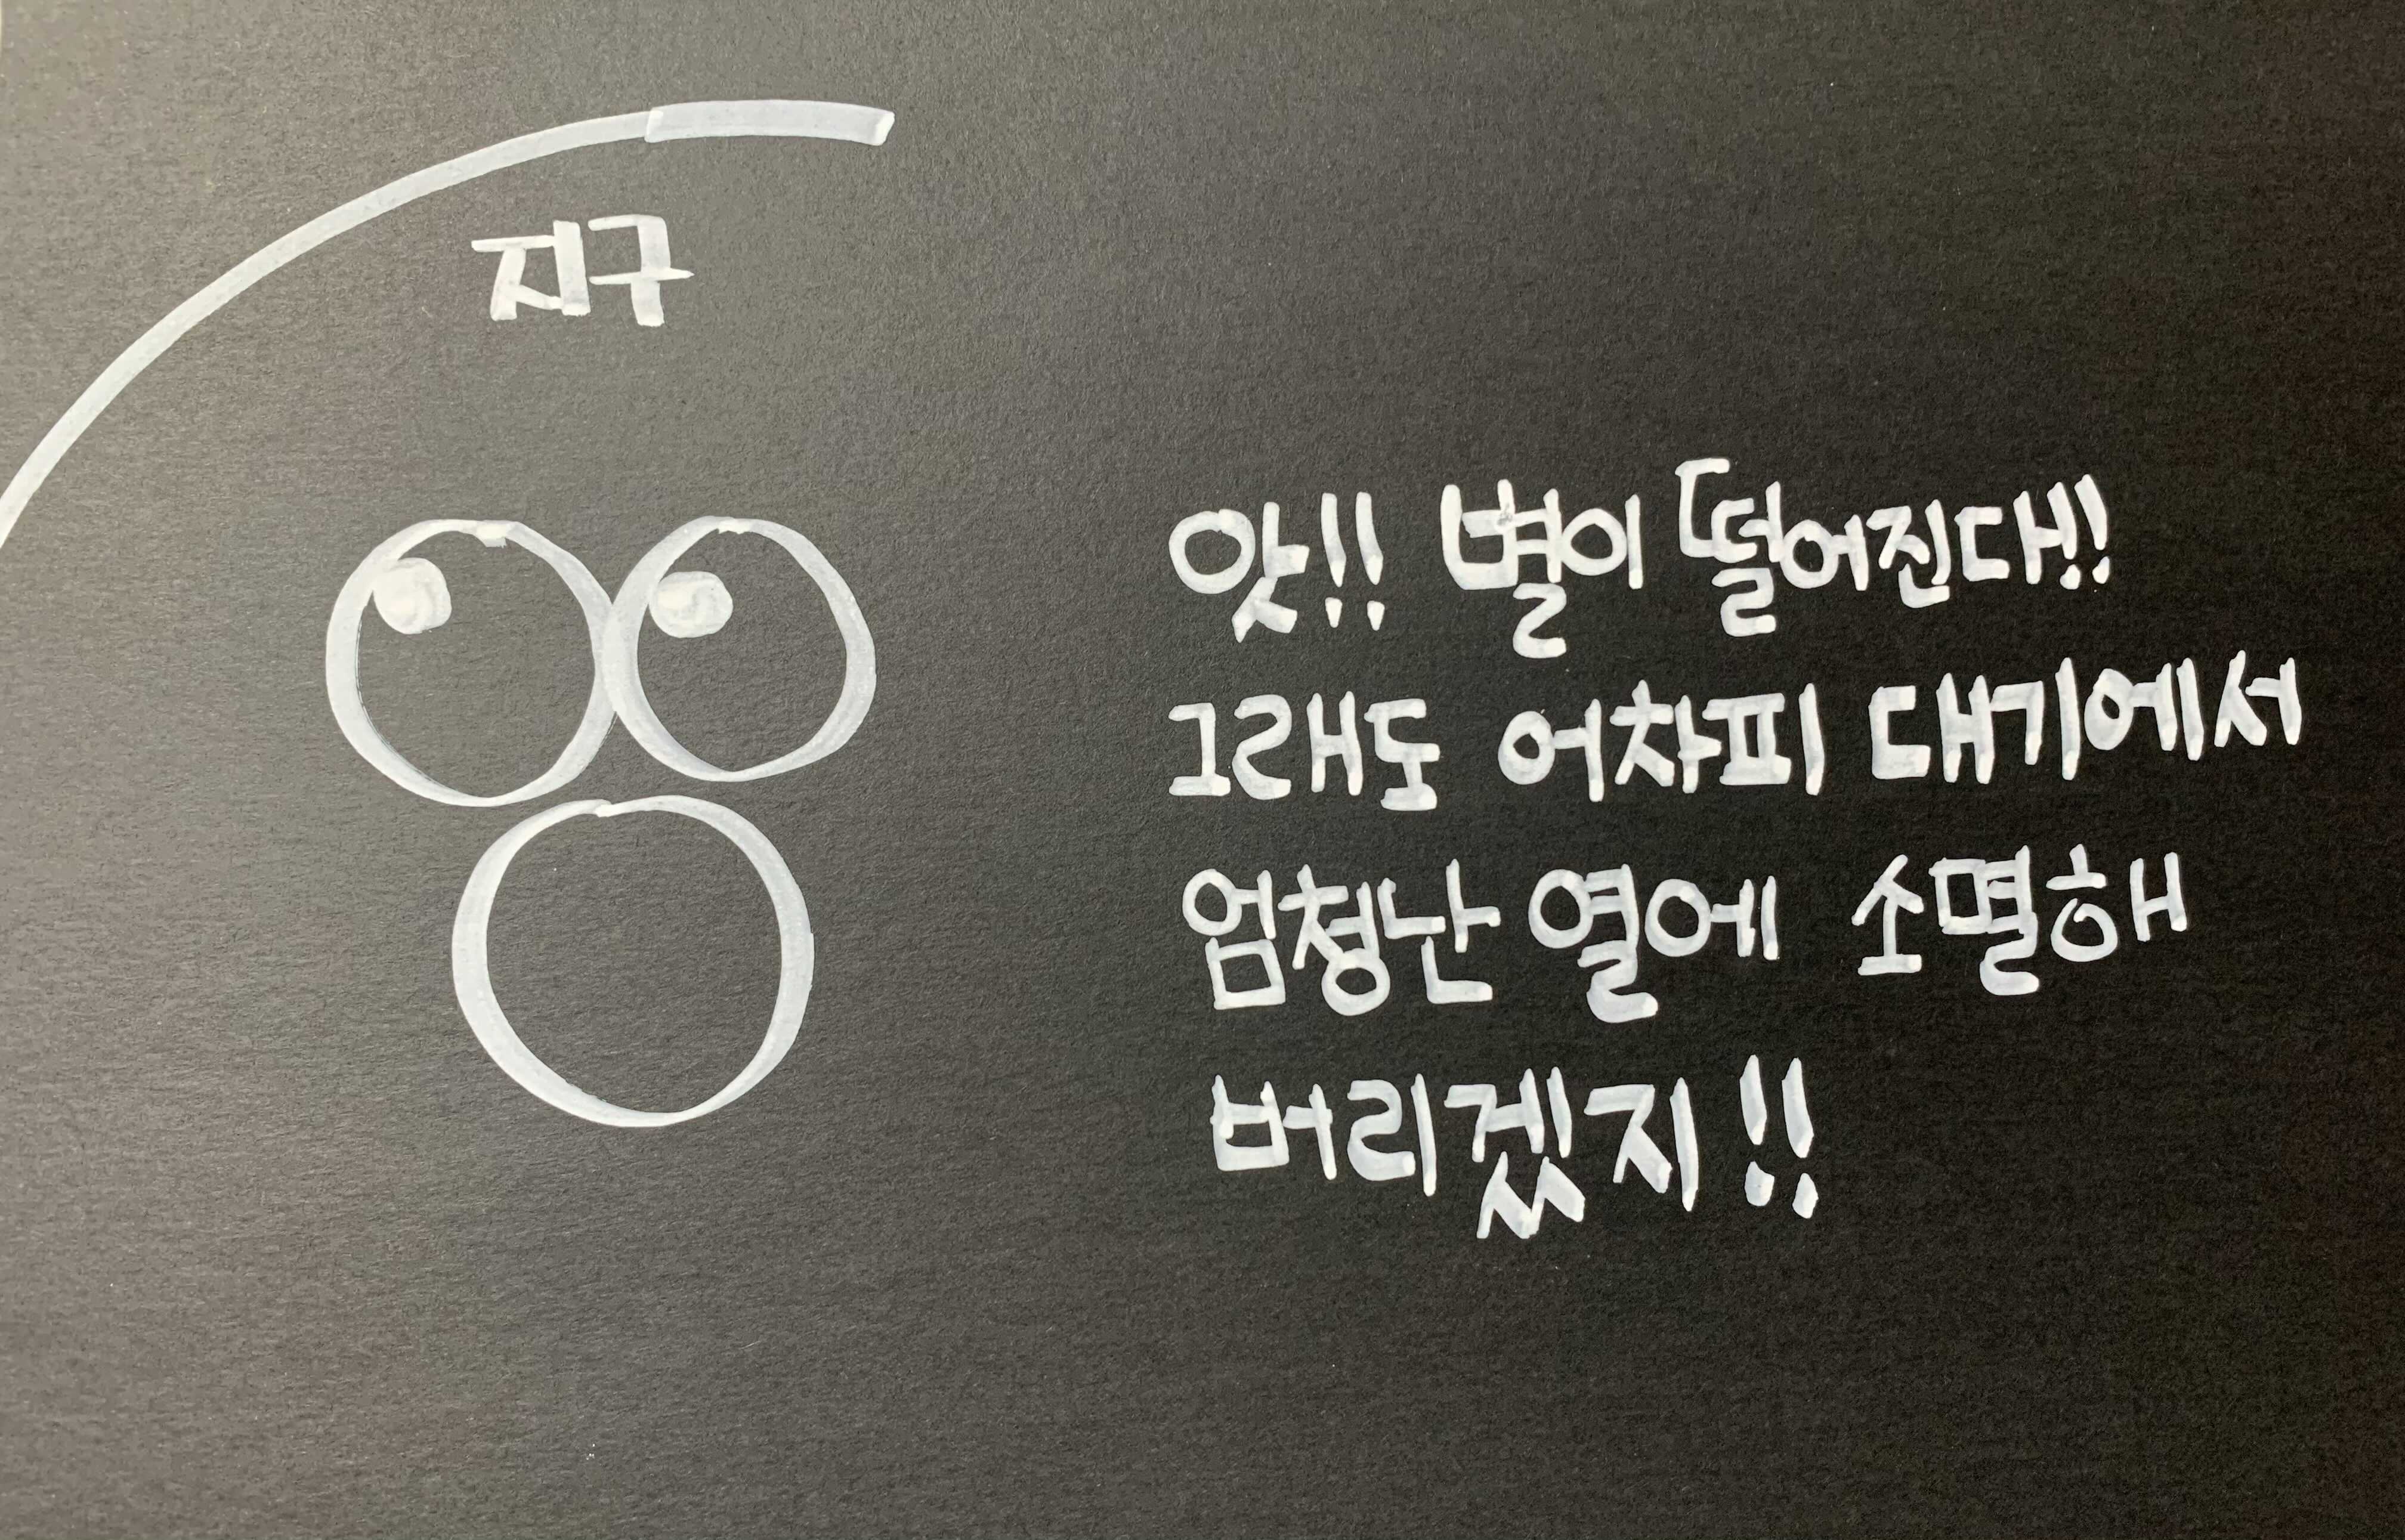 지구
앗!! 별이 떨어진다!!
그래도 어차피 대기에서
엄청난 열에 소멸해
버리겠지!!